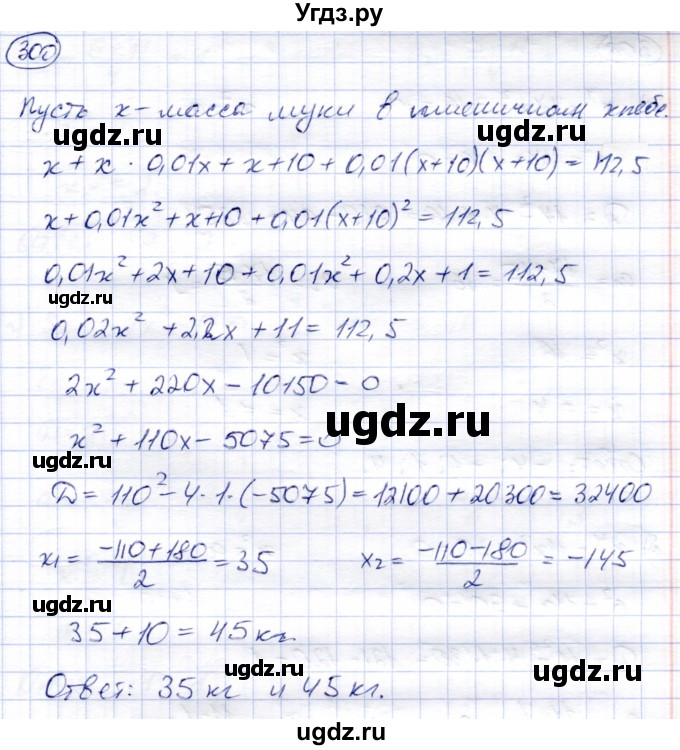 Угдз.ру
300
Пусть x – масса муки в пшеничном хлебе.
ugdz.ru ugdz.ru
x + x · 0,01x + x + 10 + 0,01(x+10)(x+10) = 112,5
x + 0,01x² + x + 10 + 0,01(x+10)² = 112,5
ugdz.ru
0,01x² + 2x + 10 + 0,01x² + 0,2x + 1 = 112,5
ugdz.ru
0,02x² + 2,2x + 11 = 112,5
ugdz.ru
2x² + 220x – 10150 = 0
ugdz.ru
x² + 110x – 5075 = 0
ugdz.ru
Д = 110² – 4 · 1 · (–5075) = 12100 + 20300 = 32400
ugdz.ru
x₁ = (–110+180)/2 = 35 x₂ = (–110–180)/2 = –145
ugdz.ru
35 + 10 = 45 кг.
ugdz.ru ugdz.ru
Ответ: 35 кг и 45 кг.
ugdz.ru